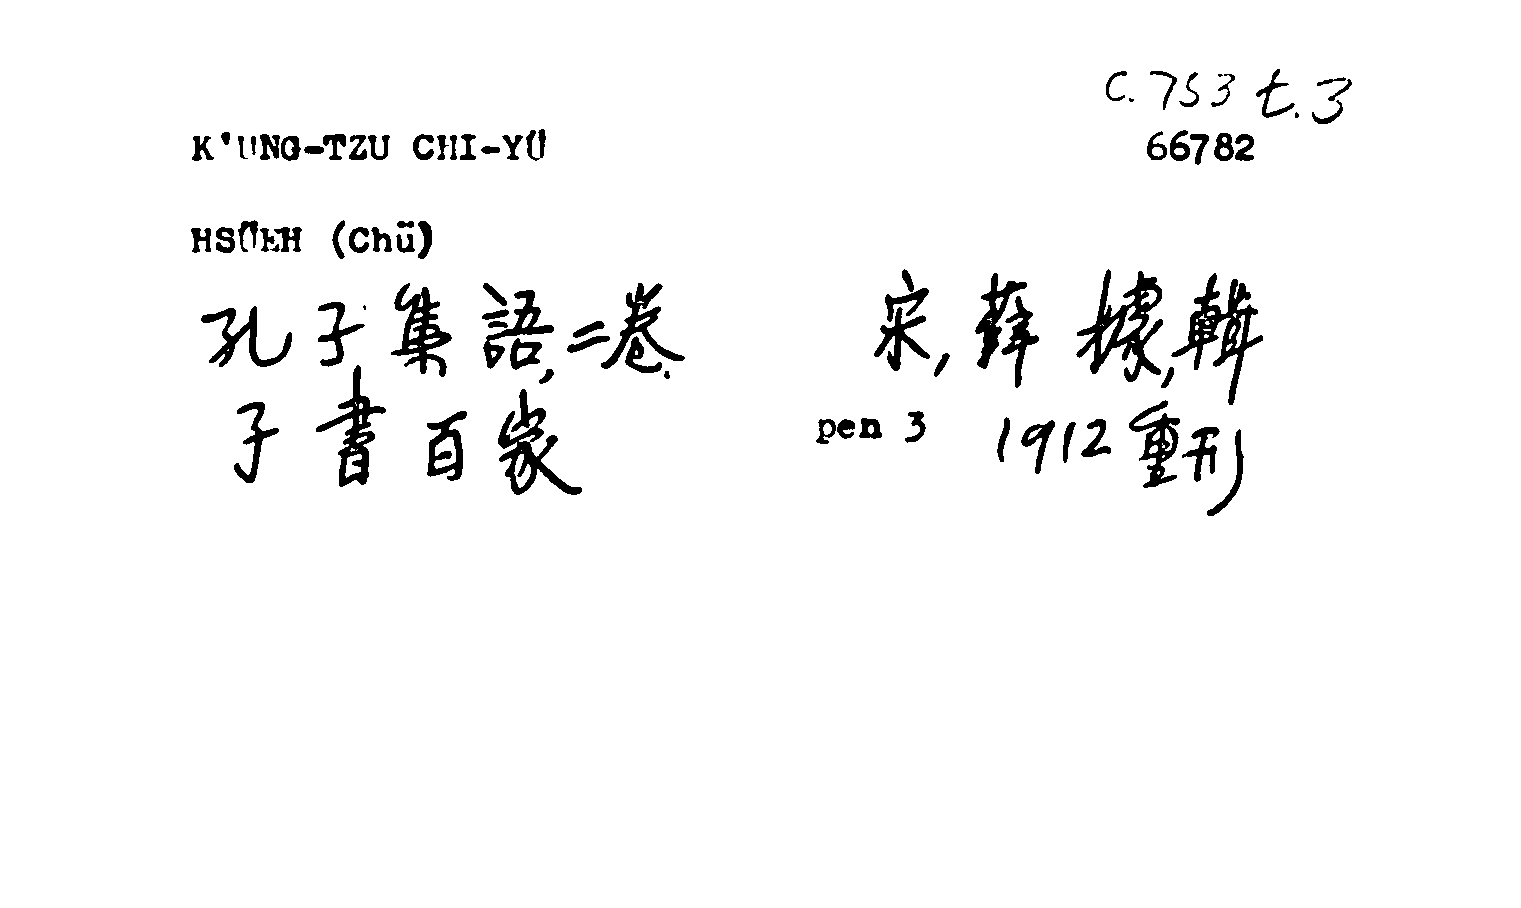 C.753 t.3
K'UNG-TZU CHI-YÜ 66782
HSÜEH (Chü)
孔子集語,二卷. 宋,薛據,輯
子書百家 pen 3 1912重刊